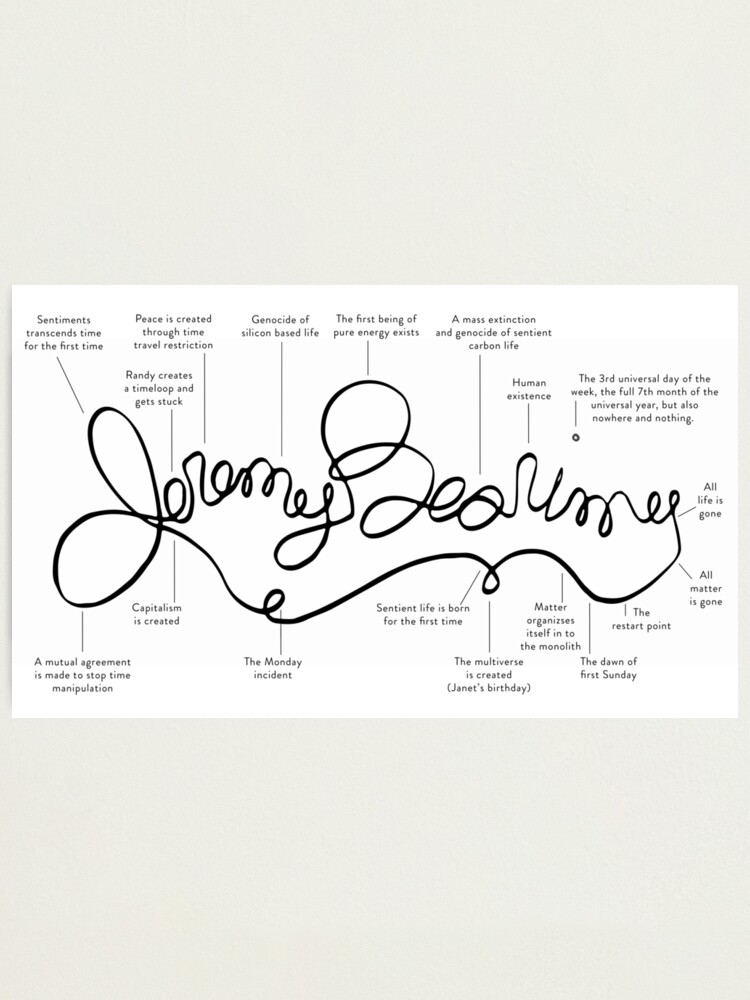 Sentiments
transcends time
for the first time
Peace is created
through time
travel restriction
Genocide of
silicon based life
The first being of
pure energy exists
A mass extinction
and genocide of sentient
carbon life
Randy creates
a timeloop and
gets stuck
Human
existence
The 3rd universal day of the
week, the full 7th month of the
universal year, but also
nowhere and nothing.
Jeremy Bearimy
All
life is
gone
All
matter
is gone
Capitalism
is created
Sentient life is born
for the first time
Matter
organizses
itself in to
the monolith
The
restart point
A mutual agreement
is made to stop time
manipulation
The Monday
incident
The multiverse
is created
(Janet's birthday)
The dawn of
first Sunday